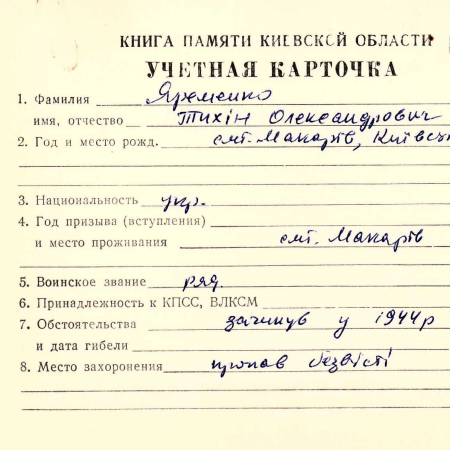 КНИГА ПАМЯТИ КИЕВСКОЙ ОБЛАСТИ
УЧЕТНАЯ КАРТОЧКА
1. Фамилия Яременко
имя, отчество Тихін Олександрович
2. Год и место рожд. смт. Макарів, Київсь
3. Национальность укр.
4. Год призыва (вступления)
и место проживания смт. Макарів
5. Воинское звание ряд.
6. Принадлежность к КПСС, ВЛКСМ
7. Обстоятельства загинув у 1944р
и дата гибели
8. Место захоронения пропав безвісті